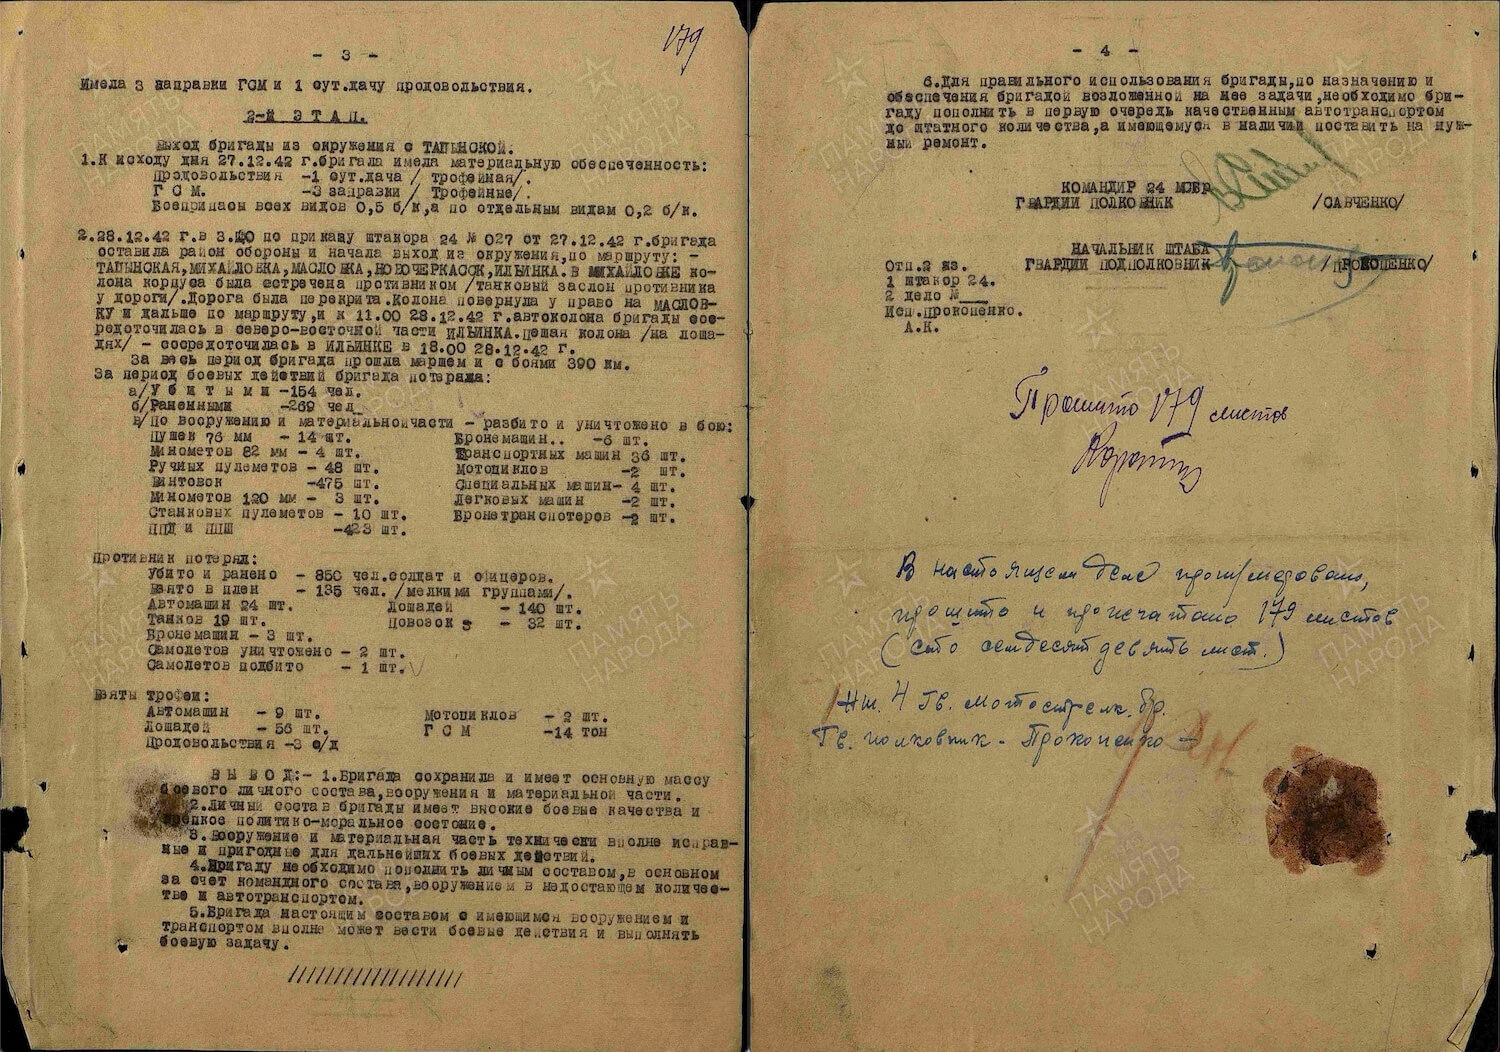 - 3 -
179
Имела 3 заправки ГСМ и 1 сут.дачу продовольствия.
2-Й ЭТАП.
Выход бригады из окружения с ТАЦЫНСКОЙ.
1.К исходу дня 27.12.42 г.бригала имела материальную обеспеченность:
Продовольствия -1 сут.дача / трофейная/.
Г С М. -3 заправки / Трофейные/.
Боеприпасы всех видов 0,5 б/к,а по отдельным видам 0,2 б/к.
2.28.12.42 г.в 3.00 по приказу штакора 24 № 027 от 27.12.42 г.бригада
оставила район обороны и начала выход из окружения,по маршруту: -
ТАЦЫНСКАЯ,МИХАЙЛОВКА,МАСЛОВКА,НОВОЧЕРКАССК,ИЛЬИНКА.В МИХАЙЛОВКЕ ко-
лона корпуса была встречена противником /танковый заслон противника
у дороги/.Дорога была перекрита.Колона повернула у право на МАСЛОВ-
КУ и дальше по маршруту,и к 11.00 28.12.42 г.автоколона бригады сос-
редоточилась в северо-восточной части ИЛЬИНКА.Пешая колона /на лоша-
дях/ - сосредоточилась в ИЛЬИНКЕ в 18.00 28.12.42 г.
За весь период бригада прошла маршем и с боями 390 км.
За период боевых действий бригада потеряла:
а/У б и т ы м и -154 чел.
б/Раненными -269 чел
в/по вооружению и материальнойчасти - разбито и уничтожено в бою:
Пушек 76 мм - 14 шт. Бронемашин.. -6 шт.
Минометов 82 мм - 4 шт. Транспортных машин 36 шт.
Ручных пулеметов - 48 шт. Мотоциклов -2 шт.
Винтовок -475 шт. Специальных машин- 4 шт.
Минометов 120 мм - 3 шт. Легковых машин -2 шт.
Станковых пулеметов - 10 шт. Бронетранспотеров -2 шт.
ППД и ППШ -423 шт.
Противник потерял:
Убито и ранено - 850 чел.солдат и офицеров.
Взято в плен - 135 чел./мелкими группами/.
Автомашин 24 шт. Лошадей - 140 шт.
Танков 19 шт. Повозок - 32 шт.
Бронемашин - 3 шт.
Самолетов уничтожено - 2 шт.
Самолетов подбито - 1 шт.
Взяты трофеи:
Автомашин - 9 шт. Мотоциклов - 2 шт.
Лошадей - 56 шт. Г С М -14 тон
Продовольствия -3 с/д
В Ы В О Д:- 1.Бригада сохранила и имеет основную массу
боевого личного состава,вооружения и материальной части.
2.Личный состав бригады имеет высокие боевые качества и
крепкое политико-моральное состояние.
3.Вооружение и материальная часть технически вполне исправ-
ные и пригодные для дальнейших боевых действий.
4.Бригаду необходимо пополнить личным составом,в основном
за счет командного состава,вооружением в недостающем количес-
тве и автотранспортом.
5.Бригада настоящим составом с имеющимся вооружением и
транспортом вполне может вести боевые действия и выполнять
боевую задачу.
//////////////////
- 4 -
6.Для правильного использования бригады,по назначению и
обеспечения бригадой возложенной на нее задачи,необходимо бри-
гаду пополнить в первую очередь качественным автотранспортом
до штатного количества,а имеющемуся в наличии поставить на нуж-
ный ремонт.
КОМАНДИР 24 МСБР
ГВАРДИИ ПОЛКОВНИК /САВЧЕНКО/
НАЧАЛЬНИК ШТАБА
ГВАРДИИ ПОДПОЛКОВНИК /ПРОКОПЕНКО/
Отп.2 яз.
1 штакор 24.
2 дело №___
Исп.Прокопенко.
А.К.
Прошито 179 листов
В настоящем деле пронумеровано,
прошито и пропечатано 179 листов
(сто семдесят девять лист.)
Нш. 4 Гв. мотострелк. бр.
Гв. полковник - Прокопенко -
ПАМЯТЬ НАРОДА